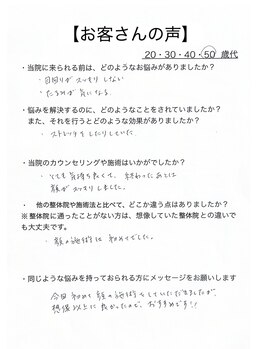 【お客さんの声】
20・30・40・50 歳代
・当院に来られる前は、どのようなお悩みがありましたか？
・目回りがスッキリしない
・たるみが気になる
・悩みを解決するのに、どのようなことをされていましたか？
また、それを行うとどのような効果がありましたか？
・ストレッチをしたりしていた
・当院のカウンセリングや施術はいかがでしたか？
・とても気持ち良くて、終わったあとは
顔がスッキリしました。
・ 他の整体院や施術法と比べて、どこか違う点はありましたか？
※整体院に通ったことがない方は、想像していた整体院との違いで
も大丈夫です。
・顔の施術は初めてでした。
・同じような悩みを持っておられる方にメッセージをお願いします
今回初めて顔の施術をしていただきましたが、
想像以上に良かったので、おすすめです!!